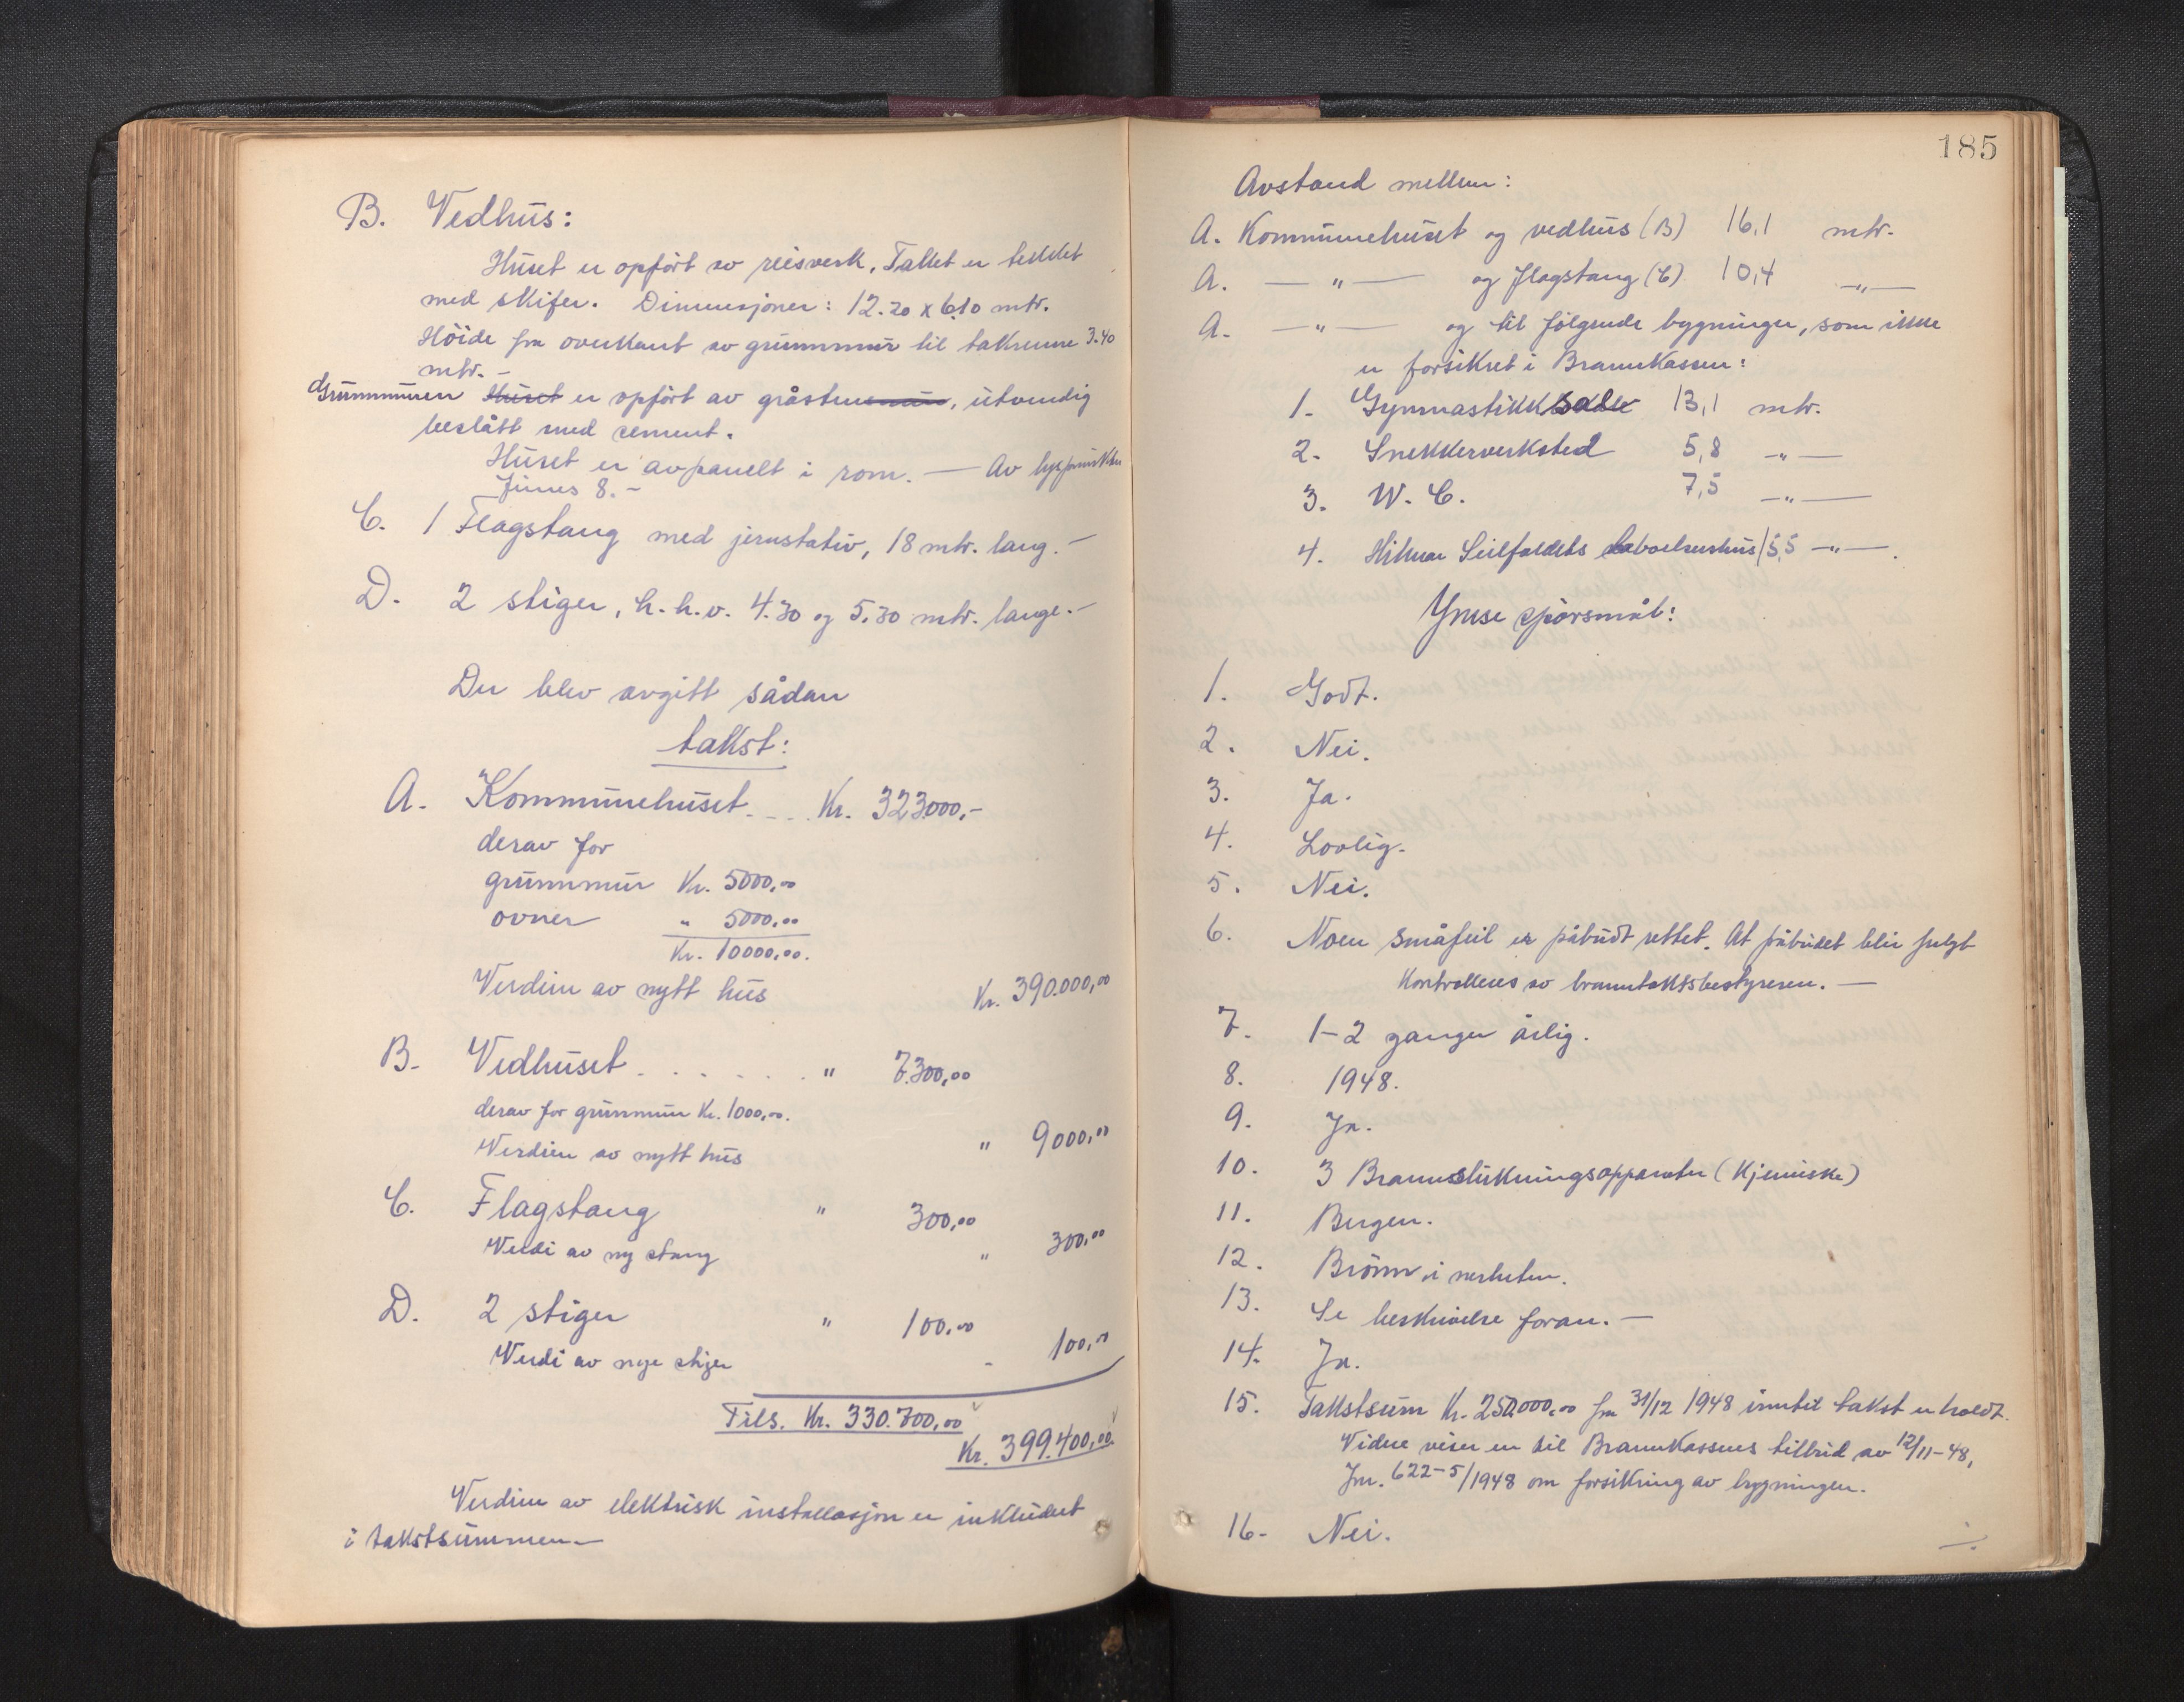 B. Vedhus:
Huset er opført av reisverk, Taket er tekket
med skifer. Dimensjoner: 12.20 x 6.10 mtr.
Höide fra overkant av grunnmur til takrenne 3.40
mtr. -
Grunnmuren Huset er opfört av gråstensmur, utvendig
beslått med cement.
Huset er avpanelt i rom. — Av lyspunkter
finnes 8. -
C. 1 Flagstang med jernstativ, 18 mtr. lang. -
D. 2 stiger, h.h.v. 4.30 og 5.30 mtr. lange. -
Der blev avgitt sådan
takst:
A. Kommunehuset.... Kr. 323000,-
derav for
grunnmur Kr. 5000,00
ovner " 5000,00
Kr. 10000,00.
Verdien av nytt hus Kr. 390.000,00
B. Vedhuset....... " 7.300,00
derav for grunnmur Kr. 1000,00.
Verdien av nytt hus " 9000,00
C. Flagstang " 300,00
Verdi av ny stang " 300,00
D. 2 stiger " 100,00
Verdi av nye stiger - 100,00
Tils. Kr. 330.700,00
Kr. 399.400,00
Verdien av elektrisk installasjon er inkludert
i takstsummen. —
185
Avstand mellem:
A. Kommunehuset og vedhus (B) 16,1 mtr.
A. — " — og flagstang (C) 10,4 — " —
A. — " — og til fölgende bygninger, som ikke
er forsikret i Brannkassen:
1. Gymnastikksale 13,1 mtr.
2. Snekkerverksted 5,8 — " —
3. W.C. 7,5 — " —
4. Hilmar Seilfaldets 5,5 — " — .
Ymse spörsmål:
1. Godt.
2. Nei.
3. Ja.
4. Lovlig.
5. Nei.
6. Noen småfeil er påbudt rettet. At påbudet blir fulgt
kontrolleres av branntakstbestyreren. —
7. 1-2 ganger årlig.
8. 1948.
9. Ja.
10. 3 Brannslukningsapparater (kjemiske)
11. Bergen.
12. Brönn i nerheten.
13. Se beskrivelse foran. —
14. Ja.
15. Takstsum Kr. 250.000,00 fra 31/12 1948 inntil takst er holdt.
Videre viser en til Brannkassens av 12/11-48,
Jnr. 622-5/1948 om forsikring av bygningen.
16. Nei.